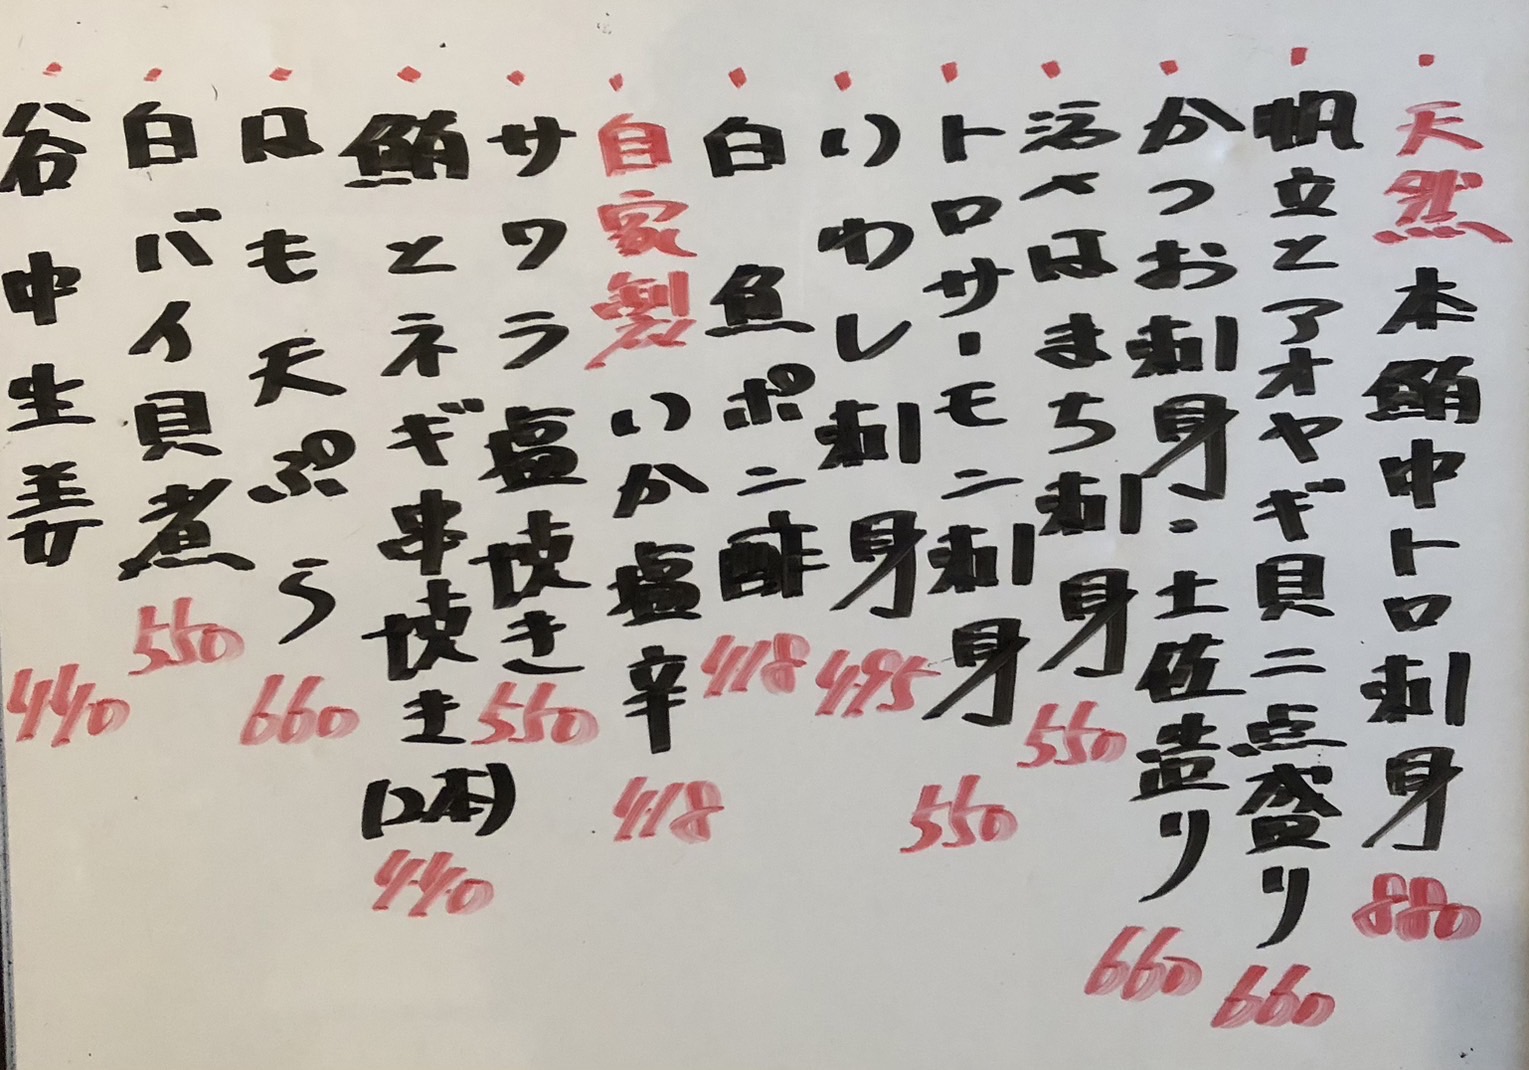 天然本鮪中トロ刺身 880
帆立とアオヤギ貝二点盛り 660
かつお刺身・土佐造り 660
活〆はまち刺身 550
トロサーモン刺身 550
いわし刺身 495
白魚ポン酢 418
自家製いか塩辛 418
サワラ塩焼き 550
鮪とネギ串焼き(2本) 440
はも天ぷら 660
白バイ貝煮 550
谷中生姜 440